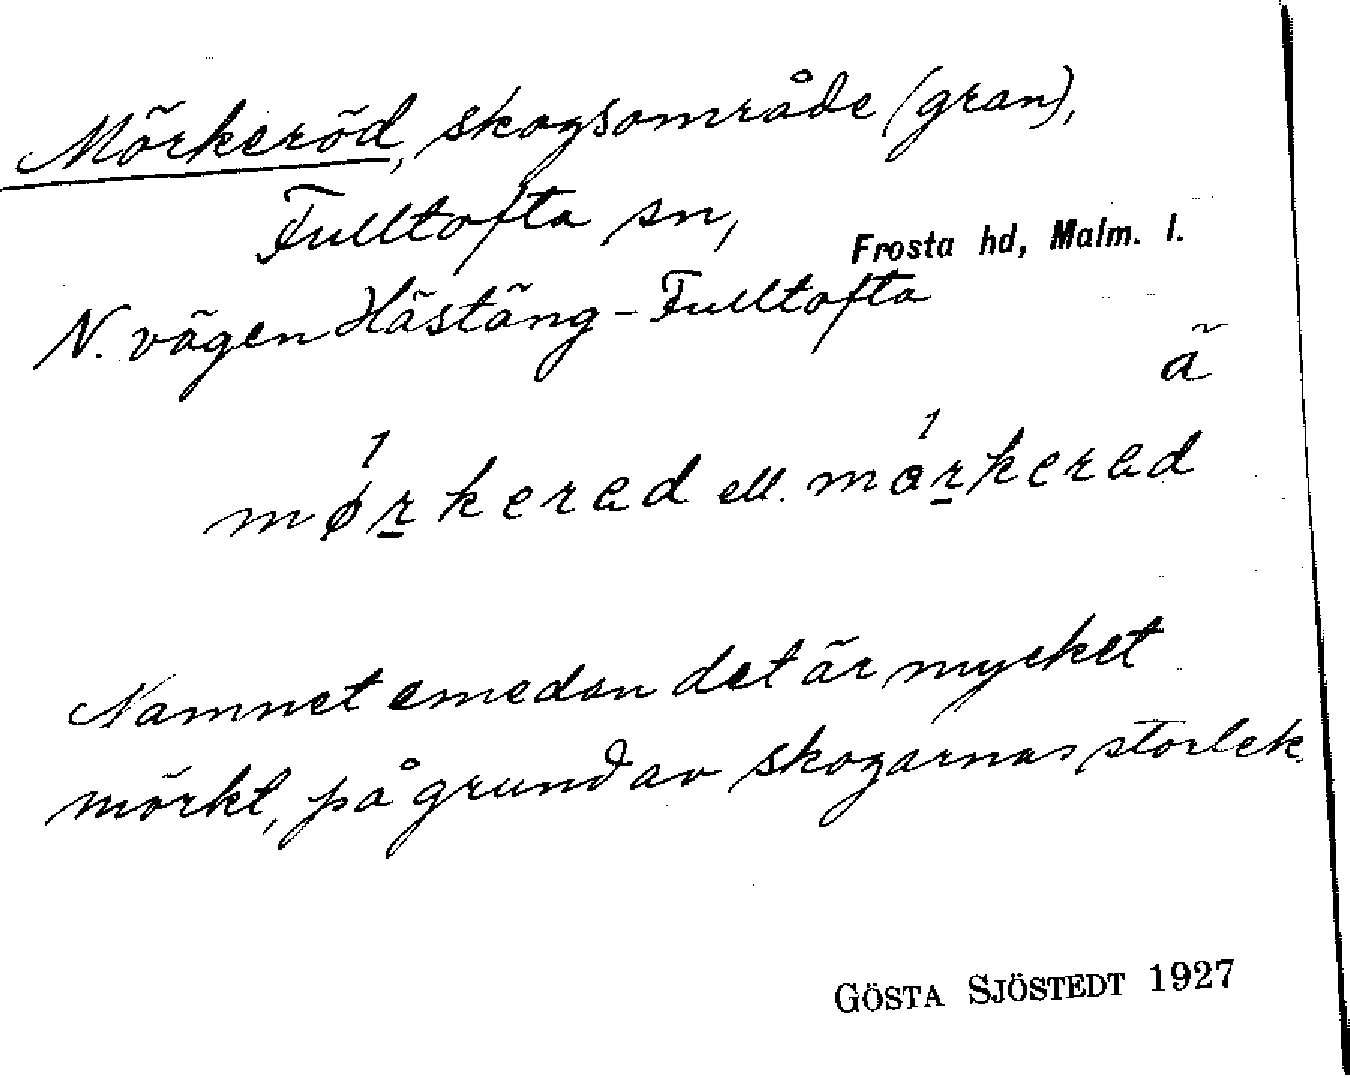 Mörkeröd, skogsområde (gran),
Fulltofta sn,
Frosta hd, Malm. l.
N. vägen Hästäng - Fulltofta
ä
mørkerad ell. märkerad
Namnet emedan det är mycket
mörkt, på grund av skogarnas storlek.
GÖSTA SJÖSTEDT 1927